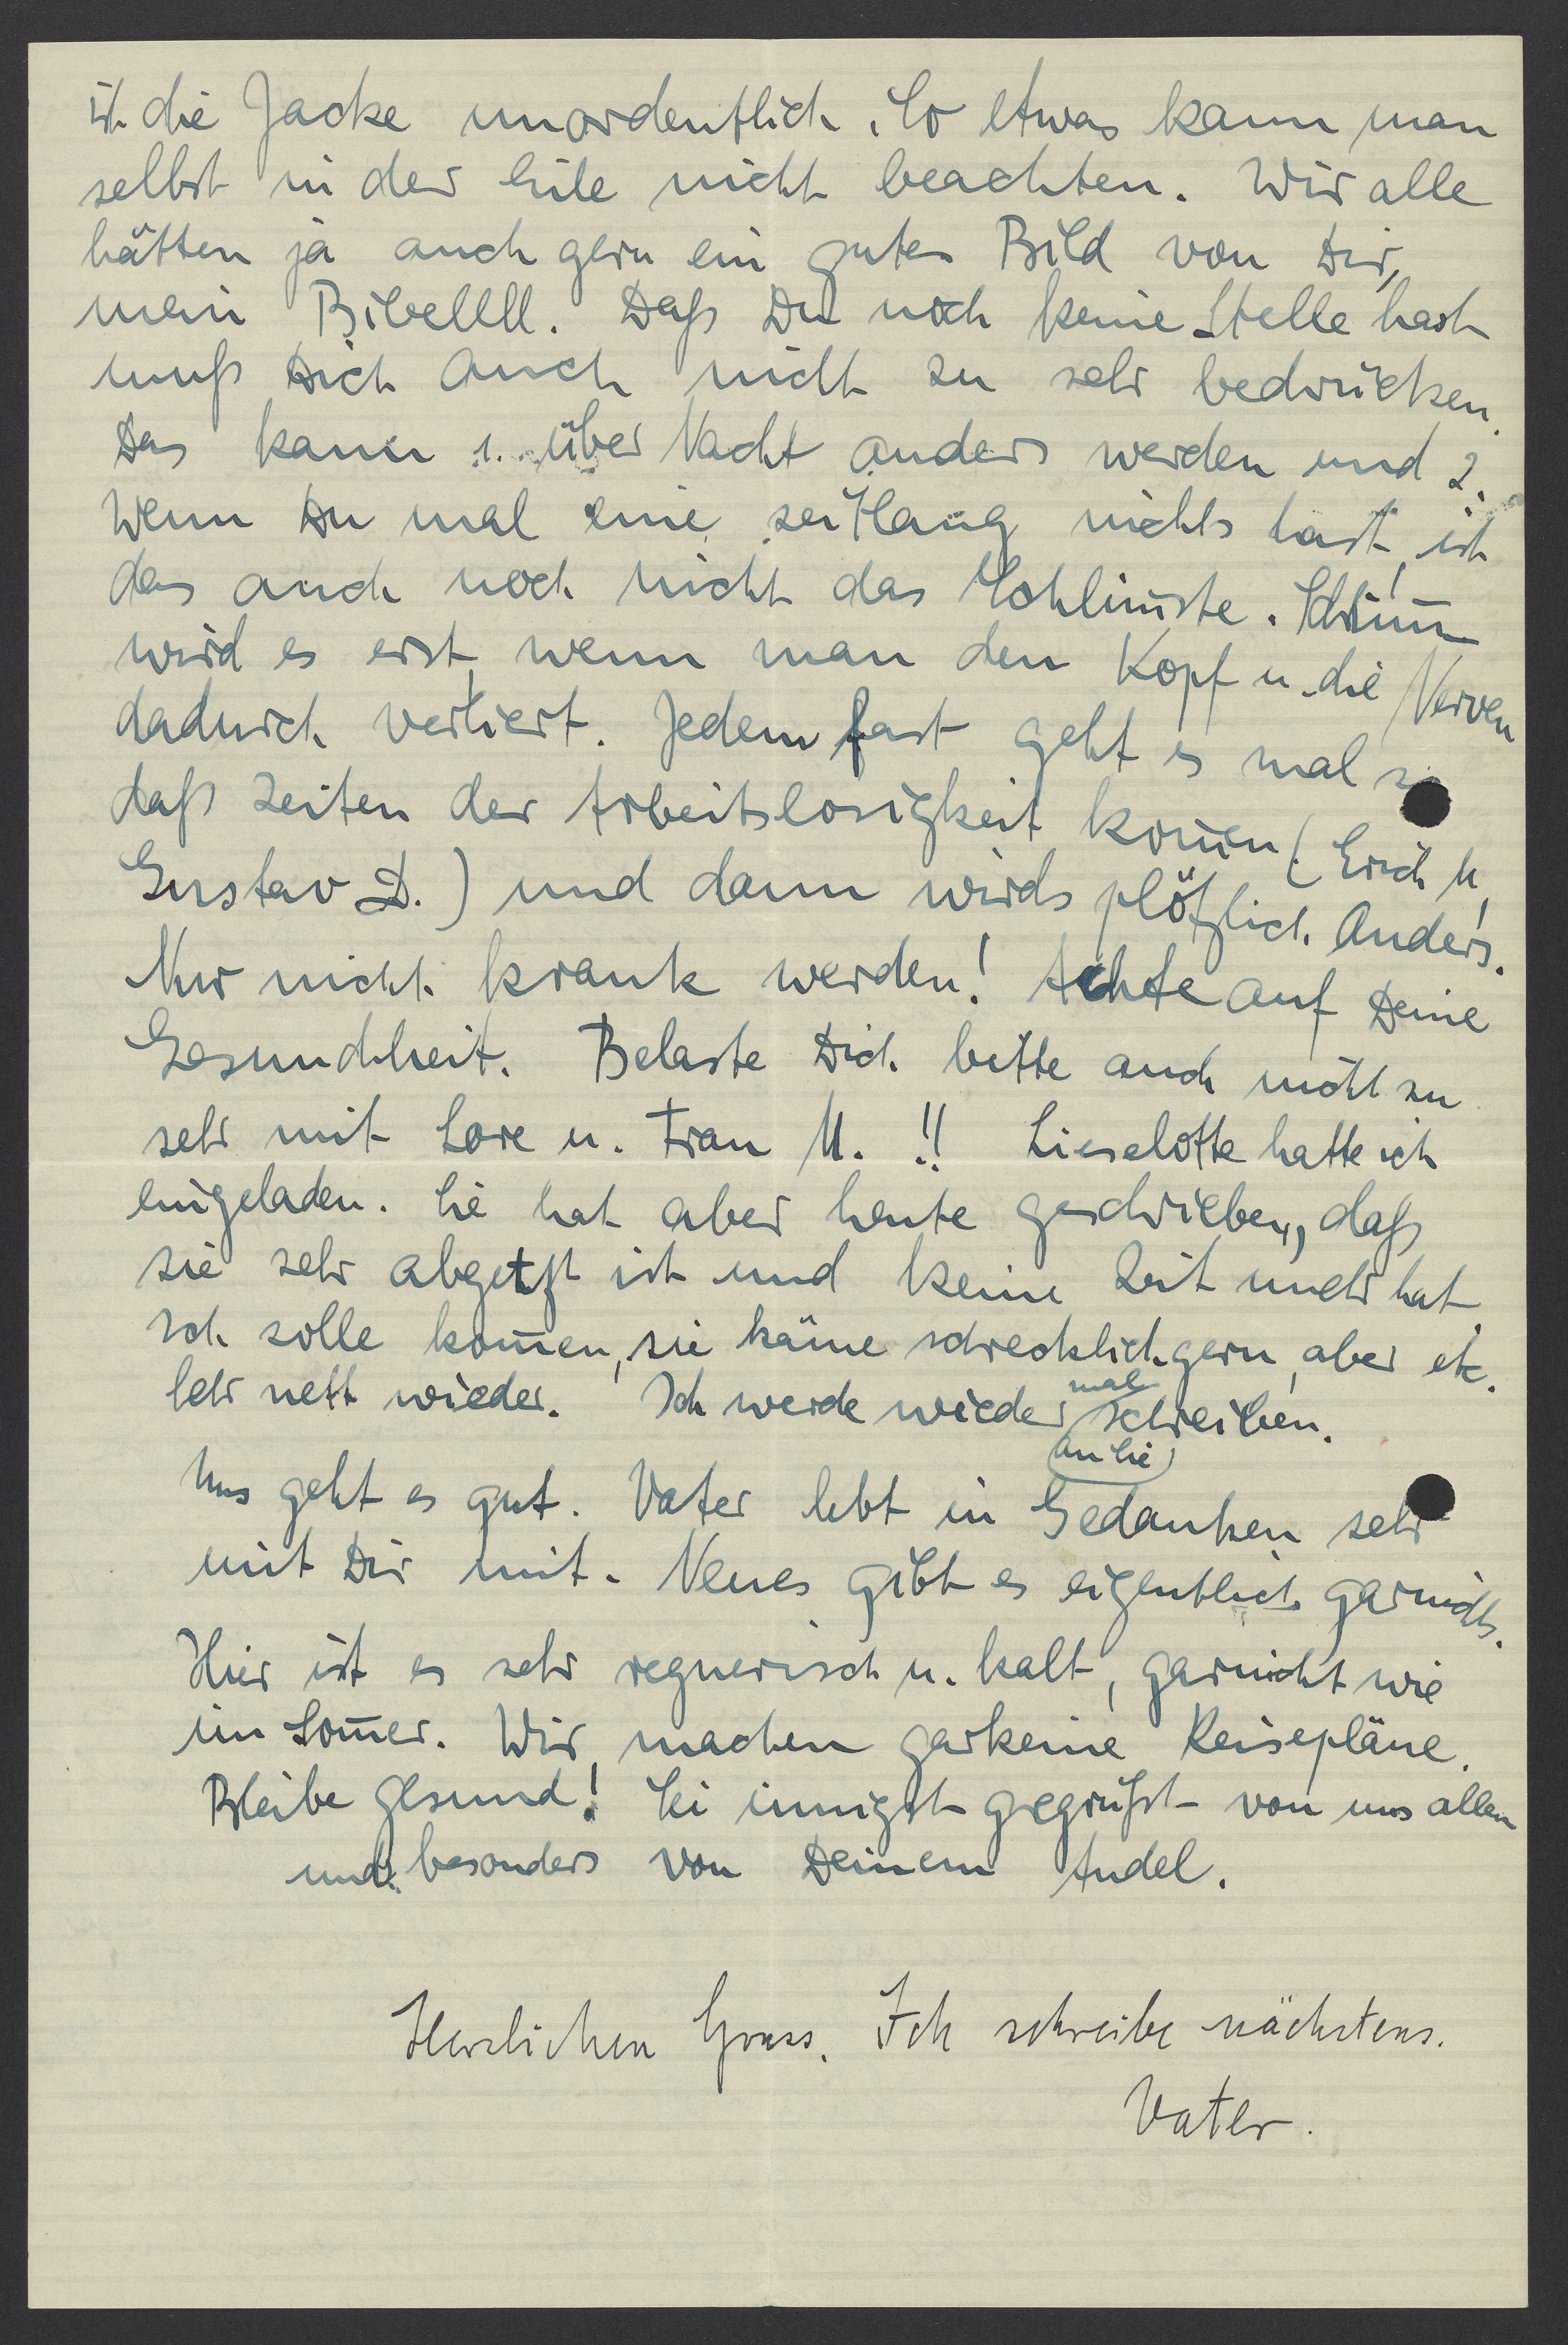 ist die Jacke unordentlich. So etwas kann man
selbst in der Eile nicht beachten. Wir alle
hätten ja auch gern ein gutes Bild von Dir,
mein Bibellll. Daß Du noch keine Stelle hast
muß Dich auch nicht zu sehr bedrücken.
Das kann 1. über Nacht anders werden und 2.
wenn Du mal eine zeitlang nichts hast, ist
das auch noch nicht das Schlim̅ste. Schlim̅
wird es erst, wenn man den Kopf u. die Nerven
dadurch verliert. Jedem fast geht es mal so
daß Zeiten der Arbeitslosigkeit kom̅en (Erich U,
Gustav D.) und dann wirds plötzlich anders.
Nur nicht krank werden! Achte auf Deine
Gesundheit. Belaste Dich bitte auch nicht zu
sehr mit Lore u. Frau U. !! Lieselotte hatte ich
eingeladen. Sie hat aber heute geschrieben, daß
sie sehr abgehetzt ist und keine Zeit mehr hat.
Ich solle kom̅en, sie käme schrecklich gern, aber etc.
Sehr nett wieder. Ich werde wieder mal schreiben.
an Sie
Uns geht es gut. Vater lebt in Gedanken sehr
mit Dir mit. Neues gibt es eigentlich garnichts.
Hier ist es sehr regnerisch u. kalt, garnicht wie
im Som̅er. Wir machen garkeine Reisepläne.
Bleibe gesund! Sei innigst gegrüßt von uns allen
und besonders von Deinem Audel.
Herzlichen Gruss. Ich schreibe nächstens.
Vater.